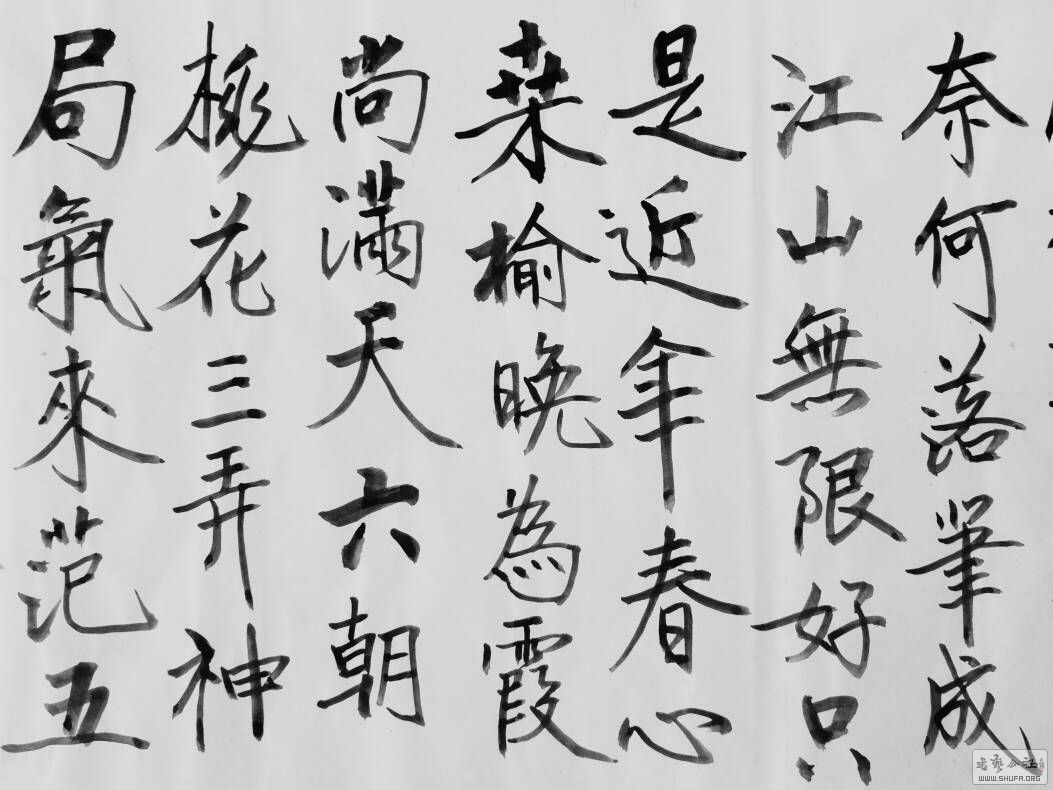 奈何落筆成
江山無限好只
是近年春心
桑榆晚為霞
尚滿天六朝
桃花三弄神
局氣來范五
WWW.SHUFA.ORG